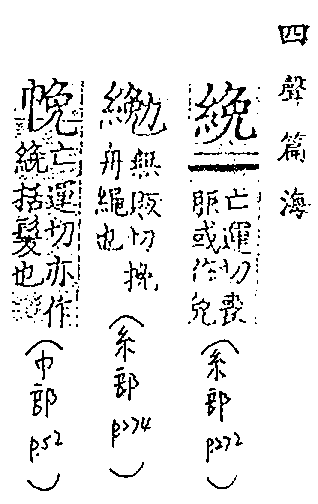 四聲篇海
絻
亡運切喪
服或作免
(糸部 p.272)
無販切挽
舟繩也
(糸部 p.274)
㡈
亡運切亦作
絻括髮也
(巾部 p.52)